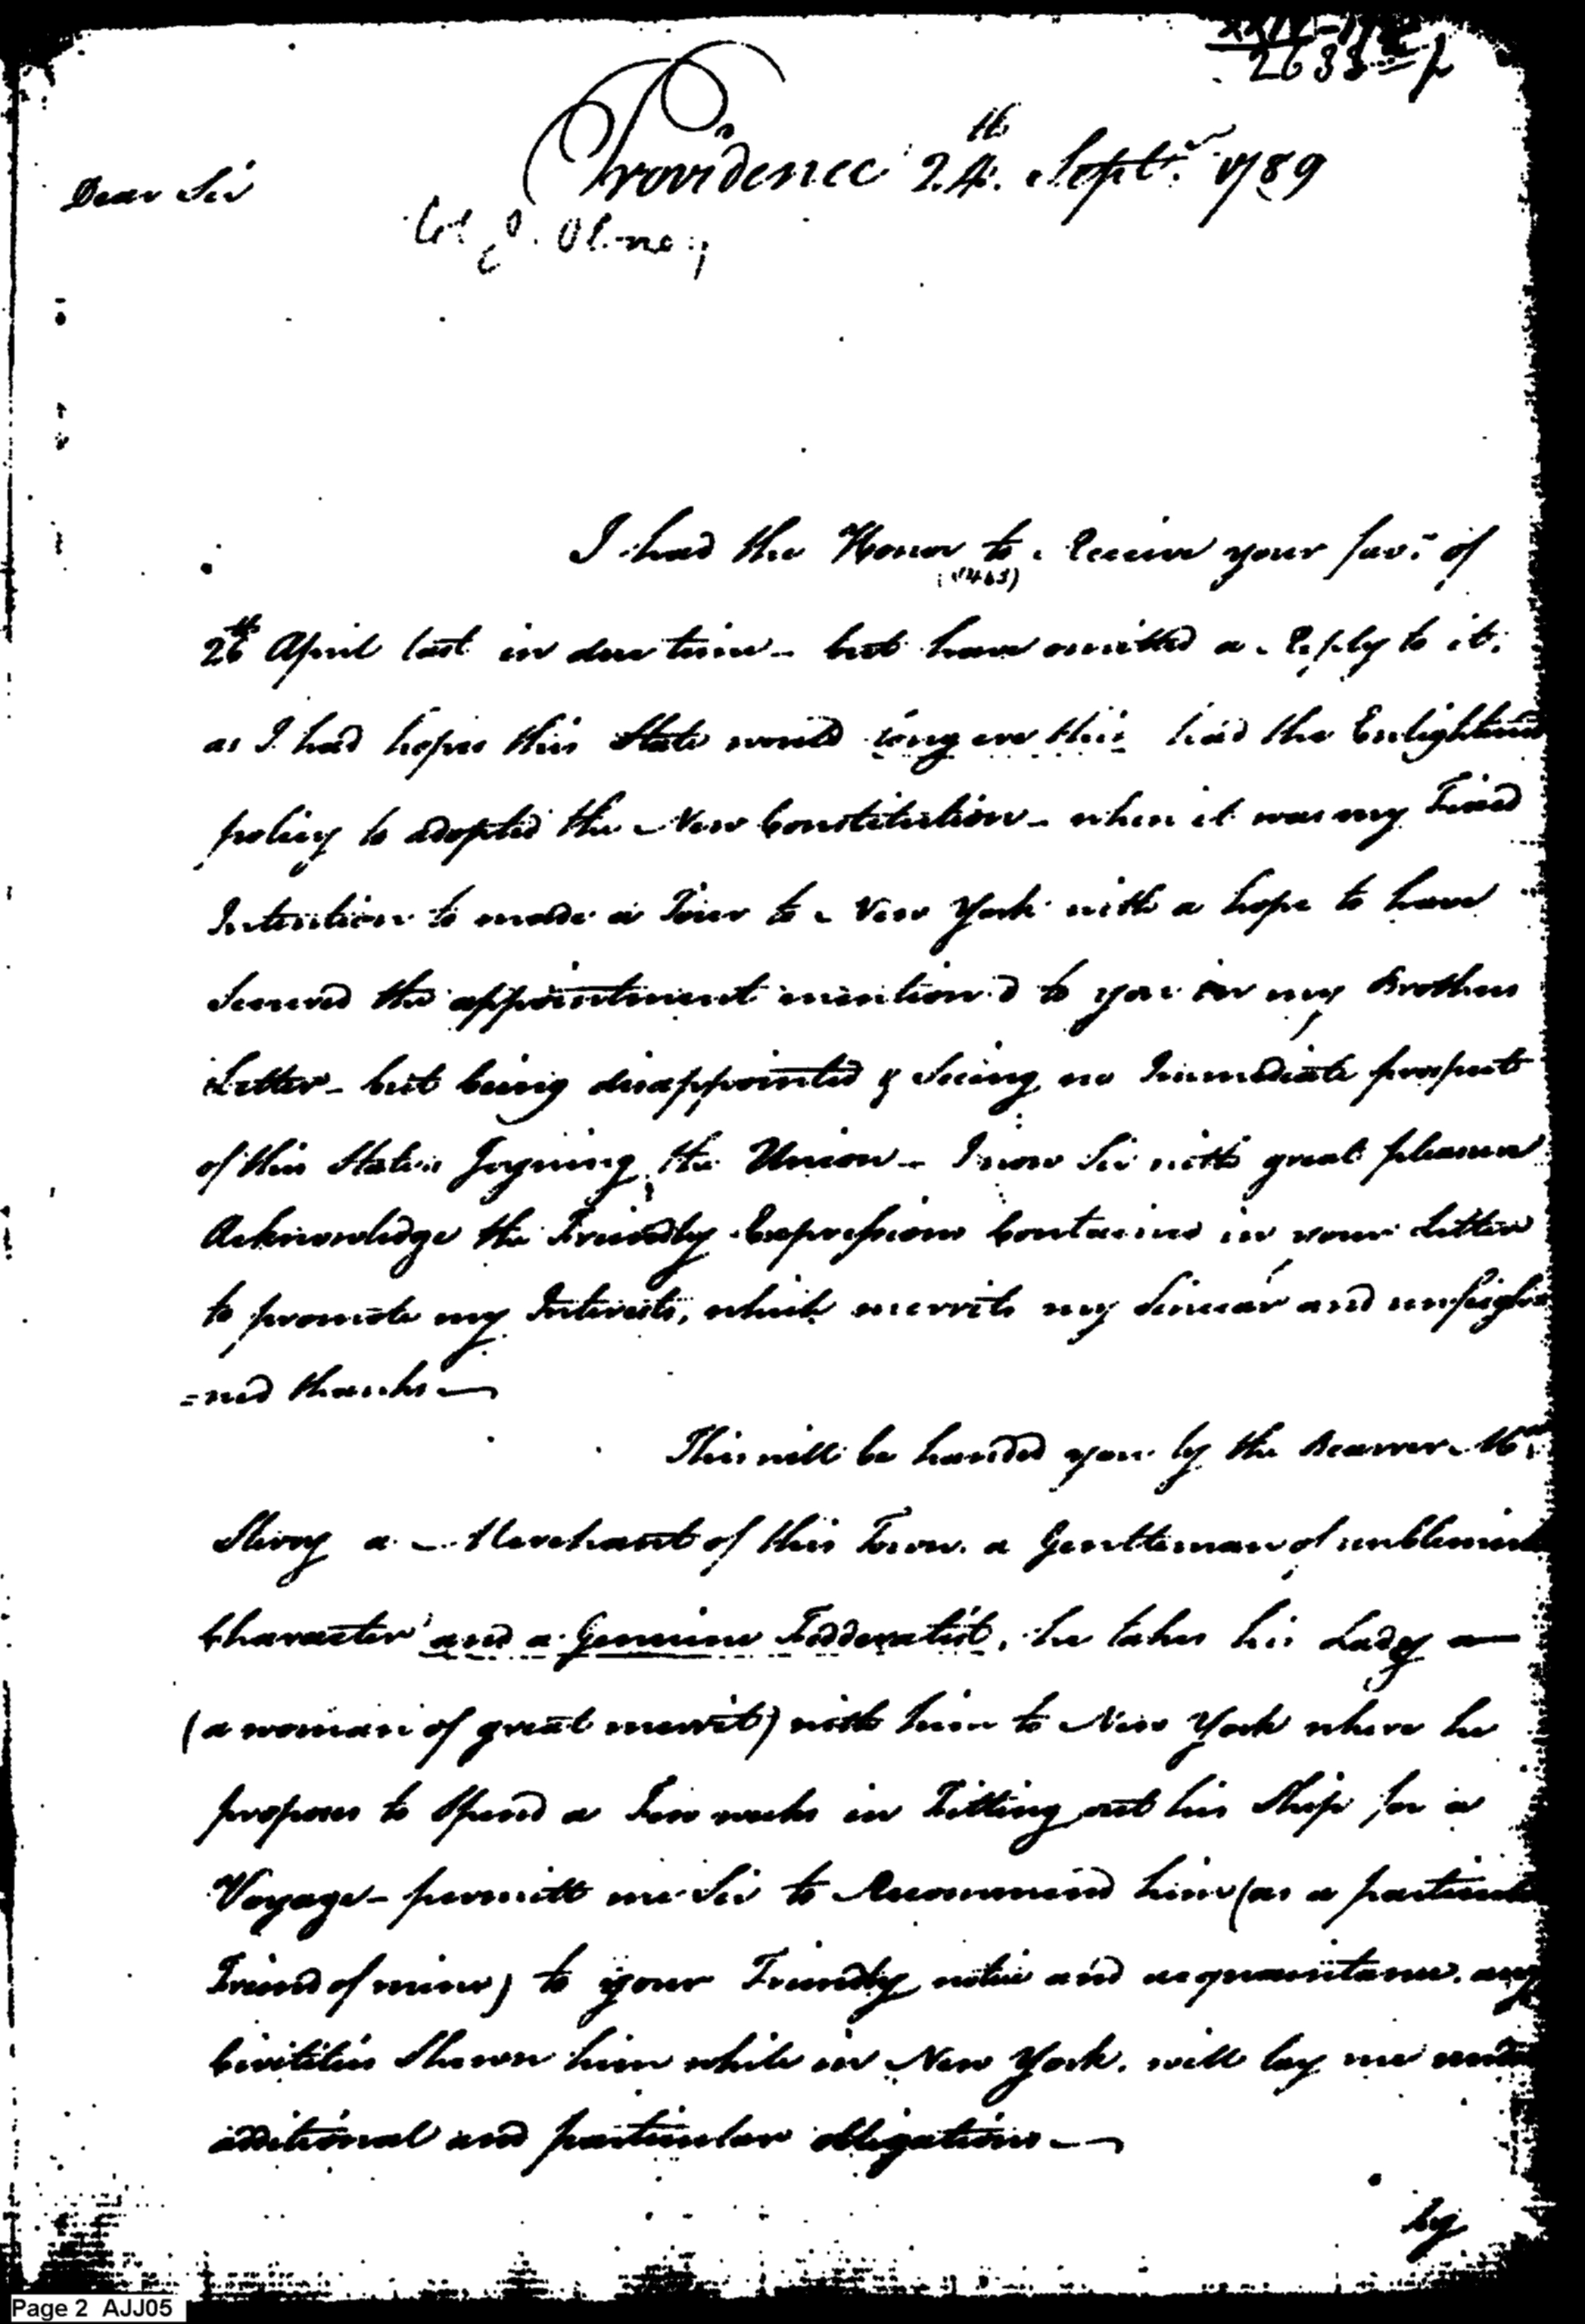 2633
Providence 24th Septr. 1789
Dear Sir
Col J. Olney
I had the Honor to Receive your favr. of
(1463)
26th April last in due time - but have omitted a Reply to it.
as I had hopes this State would long ere this had the Enlightened
policy to adopted the New Constitution - when it was my Fixed
Intention to made a Tour to New York with a hope to have
Secured the appointment mention'd to you in my Brothers
Letter - but being disappointed & Seeing no Immediate prospect
of this States Joyning the Union - I now Sir with great pleasure
Acknowledge the Friendly Expressions Contained in your Letter
to promote my Interests, which merrits my Sincear and unfeigh
=ned thanks —
This will be handed you by the Bearrer Mr
Sterry a Merchant of this Town. a Gentteman of unblemish
Character and a Genuine Fedderatist, he takes his Lady —
(a woman of great merrit) with him to New York where he
proposes to Spend a Few weeks in Fitting out his Ship for a
Voyage - permitt me Sir to Recommend him (as a particular
Friend of mine) to your Friendly notice and acquaintance. any
Civilities Shewn him while in New York. will lay me under
additional and particular obligations —
by
Page 2 AJJ05